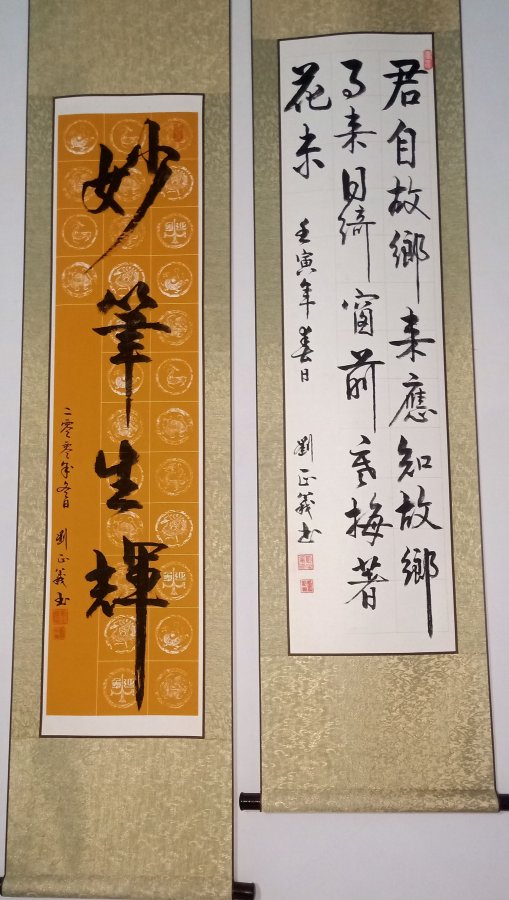 君自故鄉来應知故鄉
事来日綺窗前寒梅著
花未
壬寅年春日 劉正義书
妙筆生輝
二零零年冬日 劉正義书